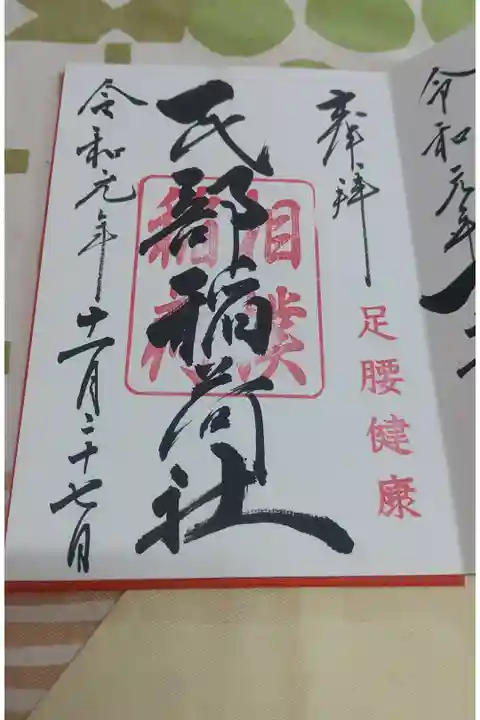 令和元年
奉拝
足腰健康
相撲
稲荷
民部稲荷社
令和元年十一月二十七月